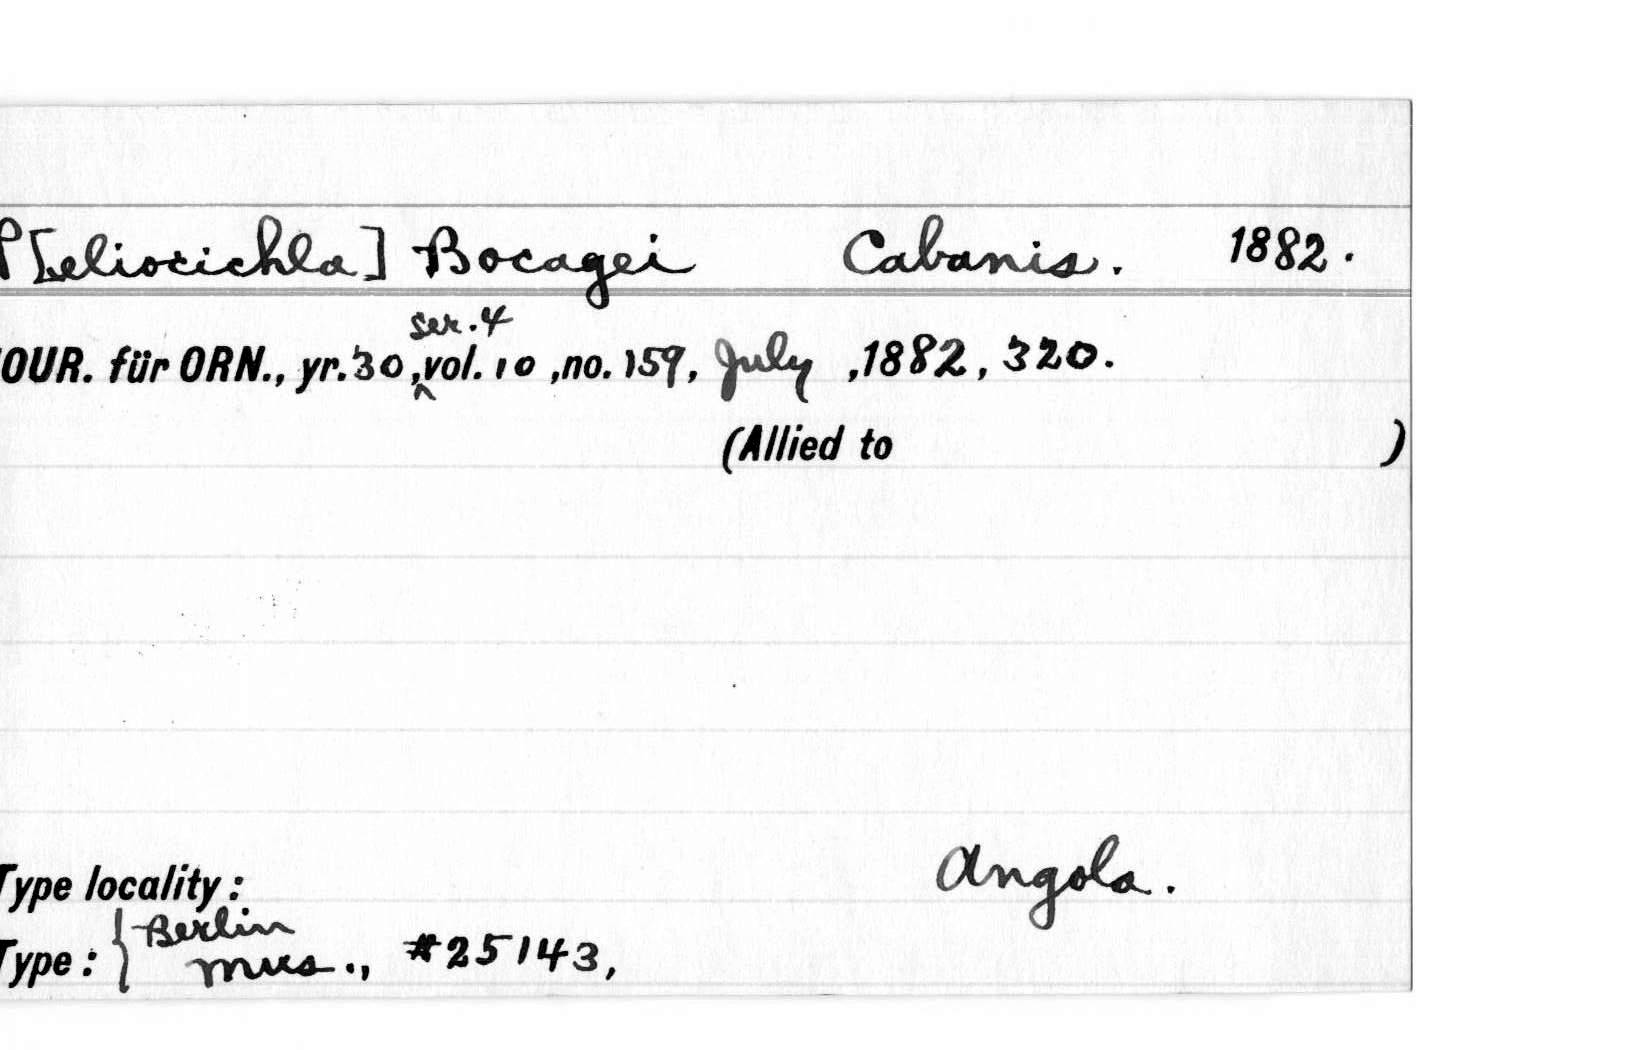 P[eliocichla] Bocagei Cabanis. 1882.
ser. 4
OUR. für ORN., yr. 30, vol. 10, no. 159, July, 1882, 320.
(Allied to )
Type locality: Angola.
Berlin
Type: { mus., #25143,